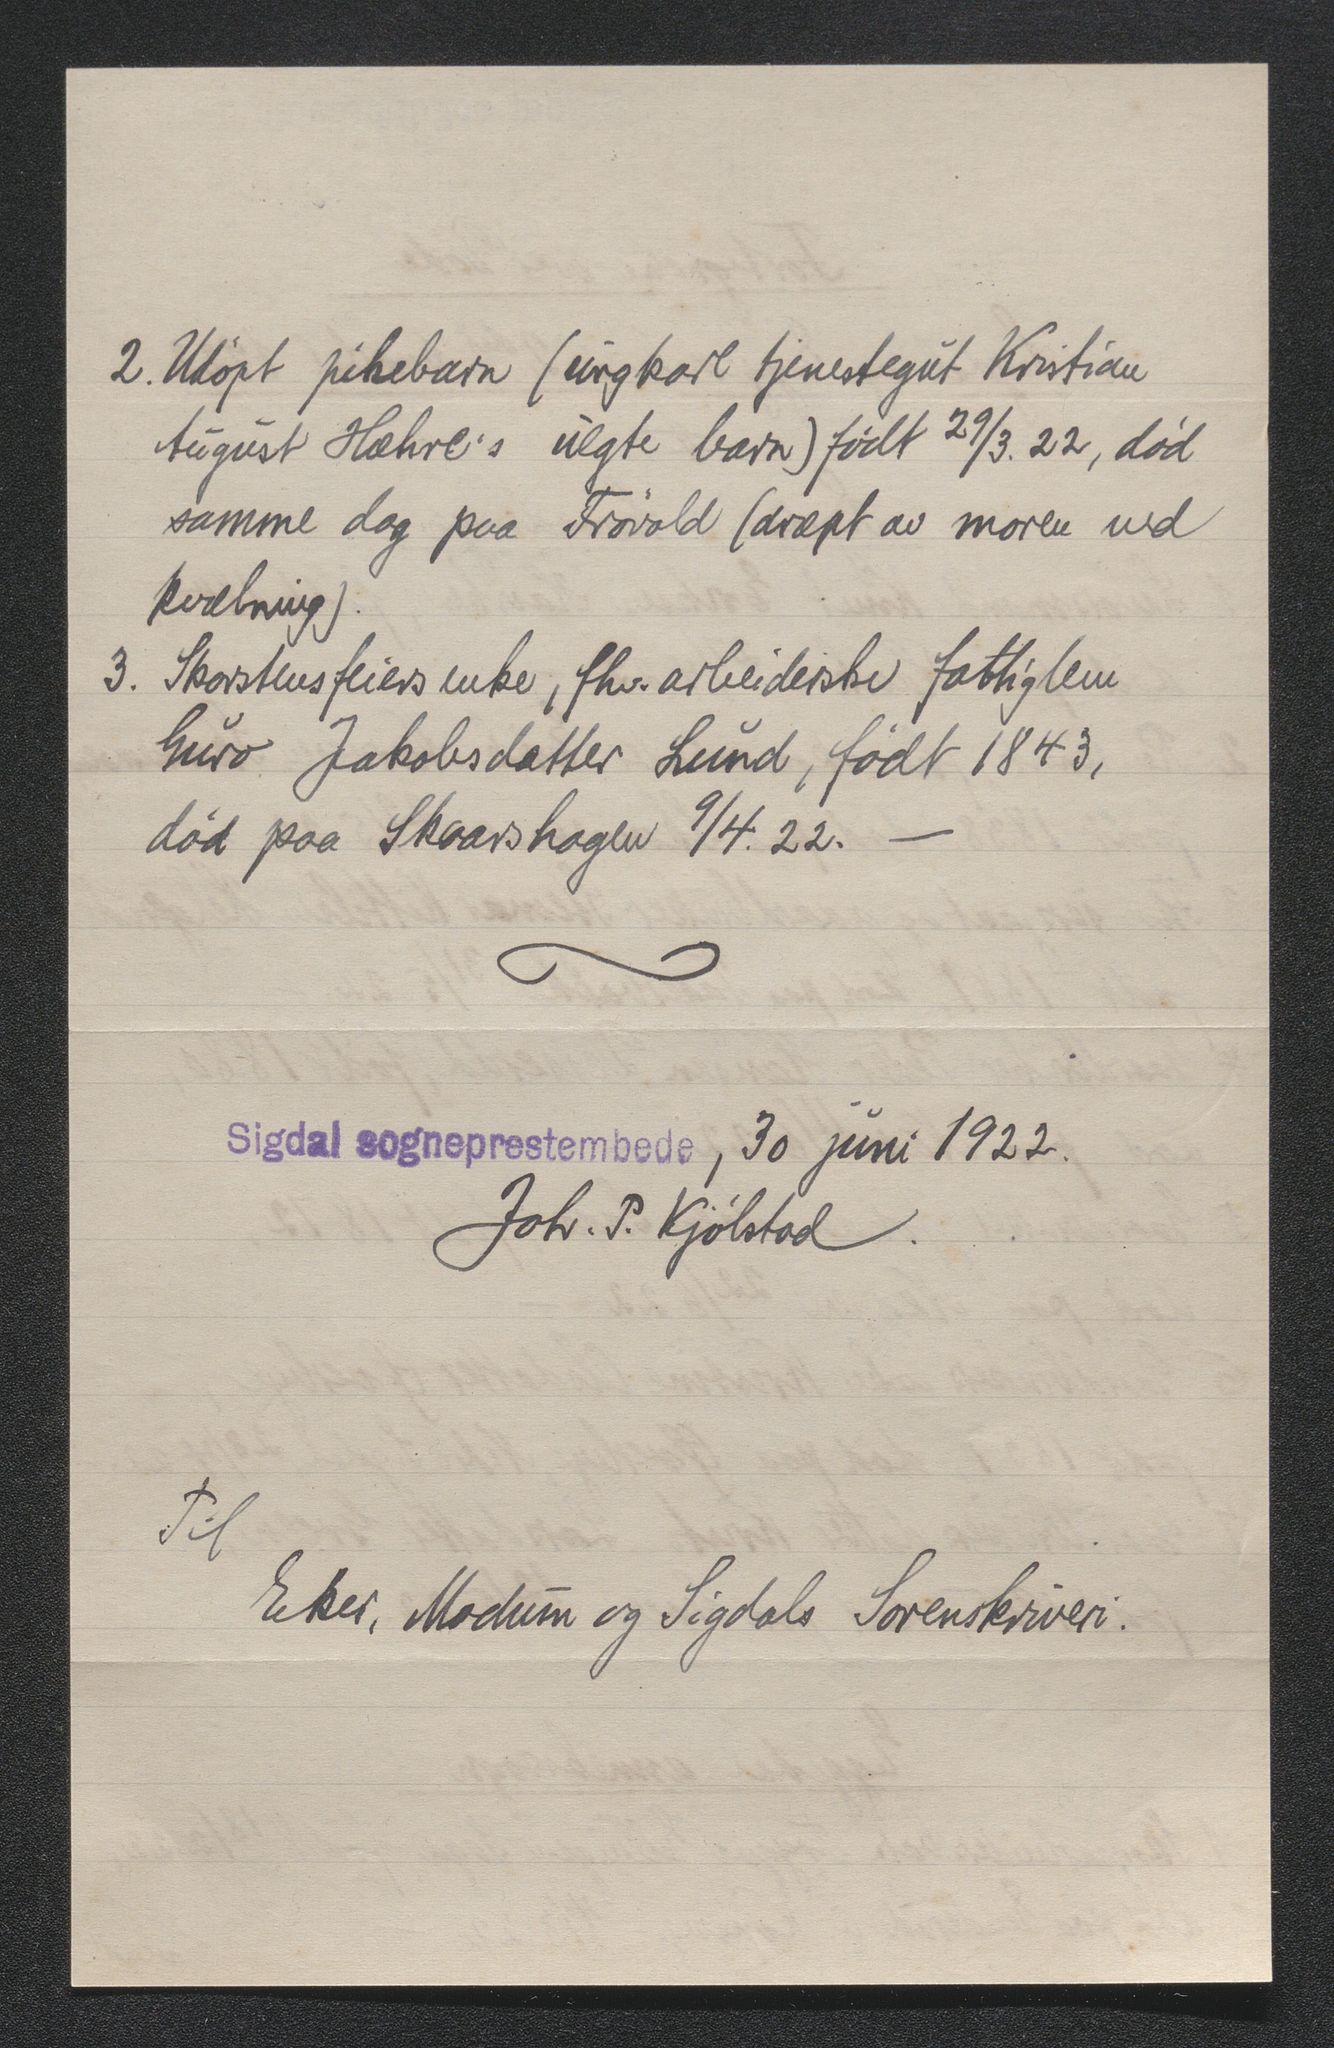 2. Udöpt pikebarn (ungkarl tjenestegut Kristian
August Hæhre's uegte barn) født 29/3. 22, död
samme dag paa Frövold (dræpt av moren ved
kvælning).
3. Skorstensfeiers enke, fhv. arbeiderske fattiglem
Guro Jakobsdatter Lund, født 1843,
död paa Skaarshagen 9/4. 22. —
Sigdal sogneprestembede, 30 juni 1922.
Joh. P. Kjölstad.
Til
Eker, Modum og Sigdals Sorenskriveri.